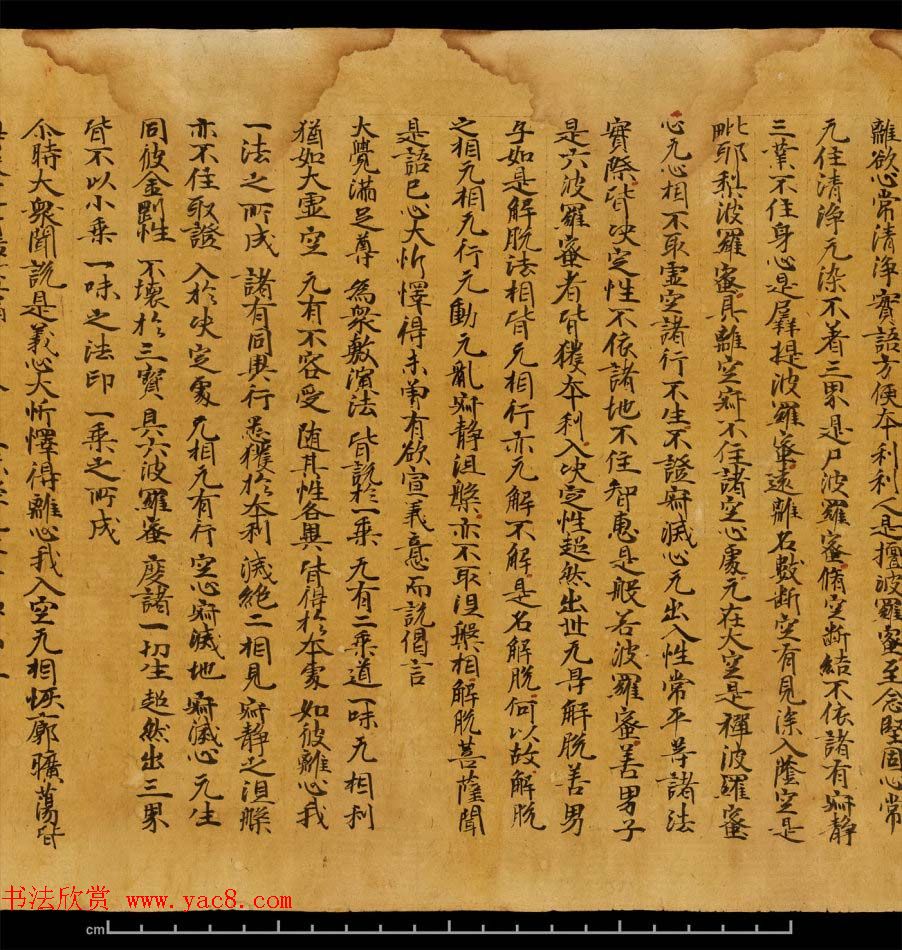 離欲心常清淨實語方便本利利人是檀波羅蜜至念堅固心常
无住清淨无染不著三界是尸波羅蜜脩空斷結不依諸有寂静
三業不住身心是羼提波羅蜜遠離名數斷空有見深入蔭空是
毗耶梨波羅蜜具離空寂不住諸空心處无在大空是禪波羅蜜
心无心相不取虛空諸行不生不證寂滅心无出入性常平等諸法
實際皆决定性不依諸地不住智惠是般若波羅蜜善男子
是六波羅蜜者皆獲本利入决定性超然出世无㝵解脱善男
子如是解脱法相皆无相行亦无解不解是名解脱何以故解脱
之相无相无行无動无亂寂静涅槃亦不取涅槃相解脱菩薩聞
是語已心大忻懌得未曾有欲宣義意而說偈言
大覺滿足尊 為衆敷演法 皆說於一乘 无有二乘道 一味无相利
猶如大虛空 无有不容受 随其性各異 皆得於本處 如彼離心我
一法之所成 諸有同異行 悉獲於本利 滅絕二相見 寂静之涅槃
亦不住取證 入於决定處 无相无有行 空心寂滅地 寂滅心无生
同彼金剛性 不壞於三寶 具六波羅蜜 度諸一切生 超然出三界
皆不以小乘 一味之法印 一乘之所成
尒時大衆聞說是義心大忻懌得離心我入空无相恢廓曠蕩皆
书法欣赏 www.yac8.com
cm